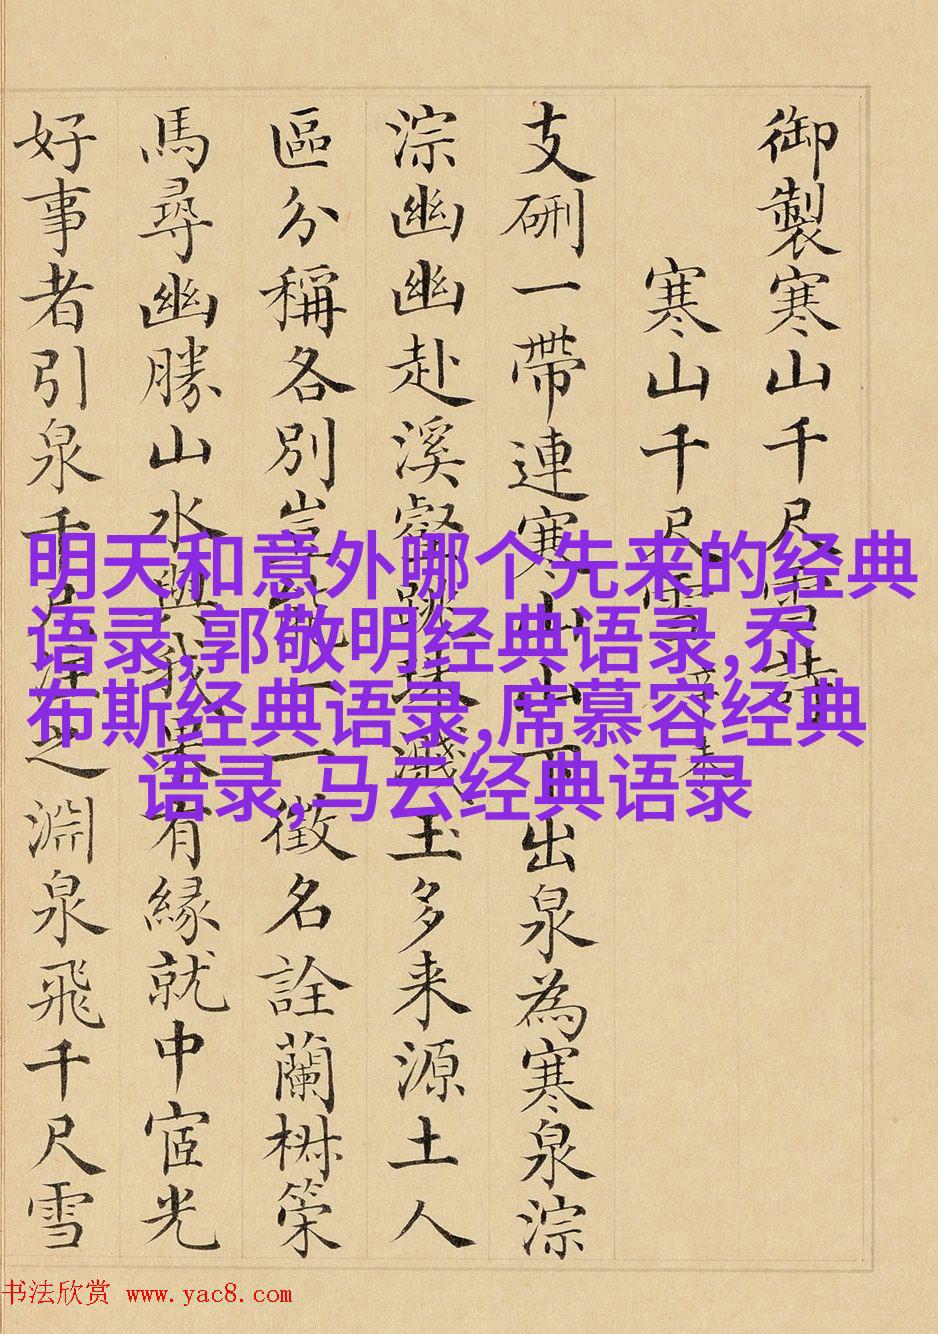 御製寒山千尺雪詩
寒山千尺雪 辛未
支硎一帶連寒山山下出泉為寒泉淙
淙幽幽赴溪壑跳珠濺玉多来源土人
區分稱各別豈能一一徵名詮蘭椒策
馬尋幽勝山水與我果有緣就中宧光
好事者引泉千尺注之淵泉飛千尺雪
明天和意外哪个先来的经典
语录,郭敬明经典语录,乔
布斯经典语录,席慕容经典
语录,马云经典语录
书法欣赏 www.yac8.com